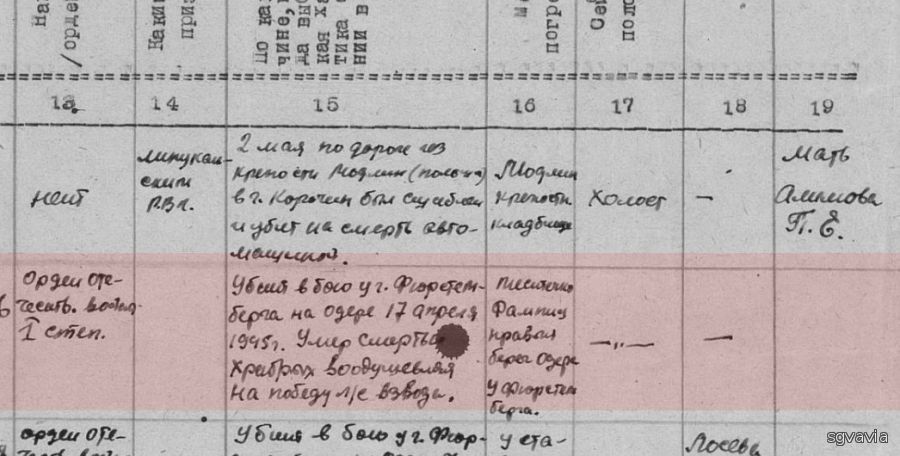 На
/орде
Каки
приз
По ка
чине,
да выб
кая ха
тика
нии в
ме
погре
Се
поло
13 14 15 16 17 18 19
нет
РВК.
2 мая по дороге из
крепости Модлин (польша)
в г. был
и убит на смерть авто-
машиной.
Модлин
крепость
кладбище
Холост
—
Мать
П. Е.
Орден оте-
чествен. войны
I степ.
Убит в бою у г. Фюрстен-
берга на одере 17 апреля
1945г. Умер смертью
храбрых воодушевляя
на победу л/с взвода.
местечко
правый
берег одера
у Фюрстен
берга.
—„—
—
орден оте-
Убит в бою у г. Фюр-
у ста-
Лосева
sgvavia